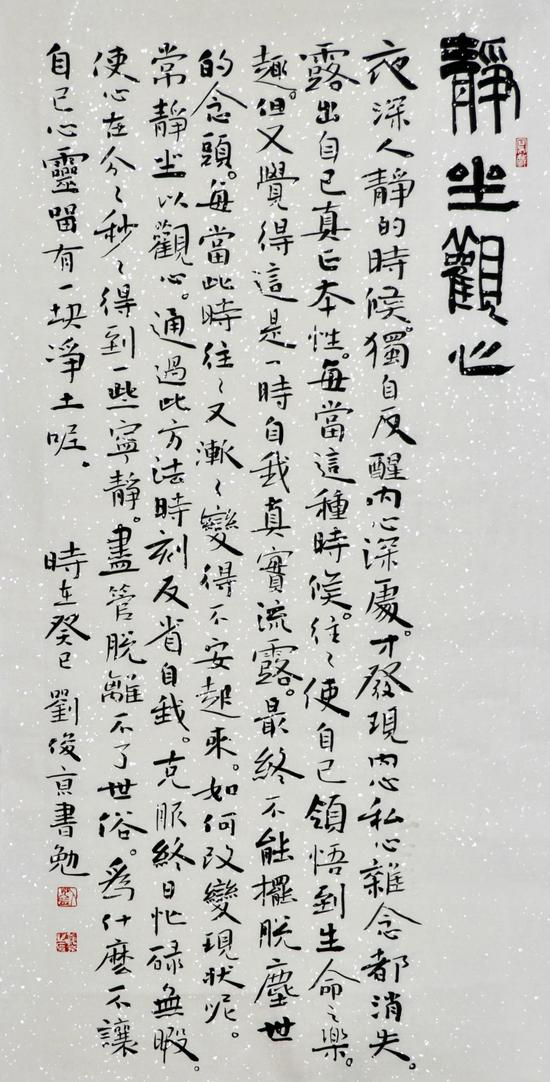 靜坐觀心
夜深人靜的時候。獨自反醒,內心深處。才發現內心私心雜念都消失。
露出自己真正本性。每當這種時候。往〻使自己領悟到生命之樂。
趣。但又覺得這是一時自我真實流露。最終不能擺脫塵世
的念頭。每當此時往〻又漸〻變得不安起來。如何改變現狀呢。
常靜坐以觀心。通過此方法時刻反省自我。克服終日忙碌無暇。
使心在分〻秒〻得到一些寧靜。盡管脫離不了世俗。為什麼不讓
自己心靈留有一塊淨土呢。
時在癸巳 劉俊京書勉